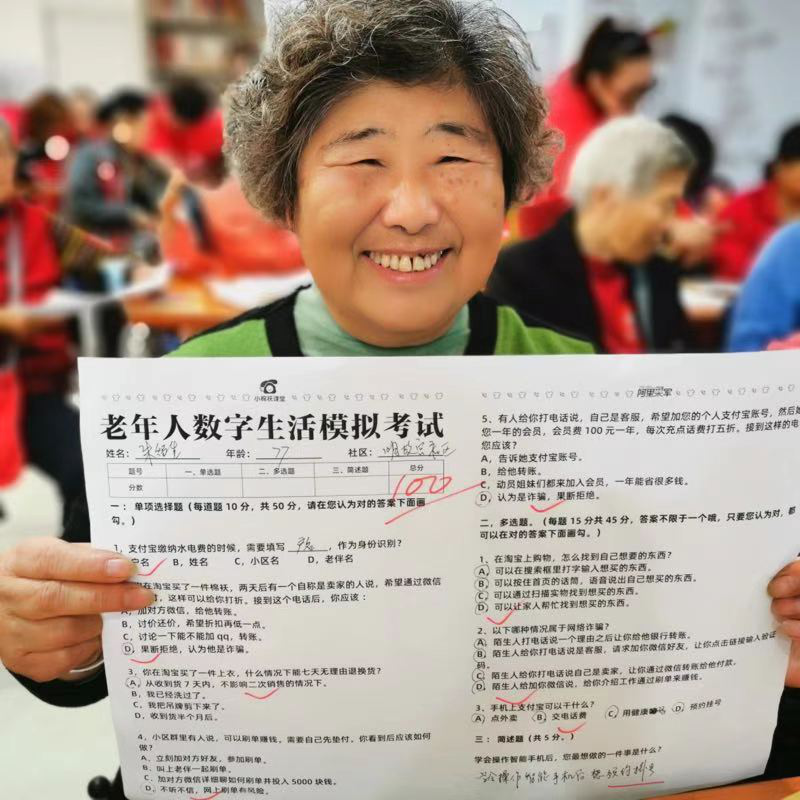 小棉袄课堂
老年人数字生活模拟考试
姓名： 年龄：77 社区：
题号 一、单选题 二、多选题 三、简述题 总分
分数 100
一：单项选择题（每道题 10 分，共 50 分，请在您认为对的答案下面画
勾。）
1，支付宝缴纳水电费的时候，需要填写 ，作为身份识别？
户名 B，姓名 C，小区名 D，老伴名
在淘宝买了一件棉袄，两天后有一个自称是卖家的人说，希望通过微信
，这样可以给你打折。接到这个电话后，你应该：
A，加对方微信，给他转账。
B，讨价还价，希望折扣再低一点。
C，讨论一下能不能加 qq，转账。
D，果断拒绝，认为他是诈骗。
3，你在淘宝买了一件上衣，什么情况下能七天无理由退换货？
A，从收到货 7 天内，不影响二次销售的情况下。
B，我已经洗过了。
C，我把吊牌剪下来了。
D，收到货半个月后。
4，小区群里有人说，可以刷单赚钱。需要自己先垫付，你看到后应该如何
做？
A，立刻加对方好友，参加刷单。
B，叫上老伴一起刷单。
C，加对方微信详细聊如何刷单并投入 5000 块钱。
D，不听不信，网上刷单有风险。
阿里 军
5，有人给你打电话说，自己是客服，希望加您的个人支付宝账号，然后
您一年的会员，会员费 100 元一年，每次充点话费打五折。接到这样的电
您应该？
A，告诉她支付宝账号。
B，给他转账。
C，动员姐妹们都来加入会员，一年能省很多钱。
D，认为是诈骗，果断拒绝。
二，多选题。（每题 15 分共 45 分，答案不限于一个哦，只要您认为对，都
可以在对的答案下面画勾。）
1，在淘宝上购物，怎么找到自己想要的东西？
A，可以在搜索框里打字输入想买的东西。
B，可以按住首页的话筒，语音说出自己想买的东西。
C，可以通过扫描实物找到想买的东西。
D，可以让家人帮忙找到想买的东西。
2，以下哪种情况属于网络诈骗？
A，陌生人打电话说一个理由之后让你给他银行转账。
B，陌生人给你打电话说是客服，请求加你微信好友，让你点击链接输入验证
码。
C，陌生人给你打电话说自己是卖家，让你通过微信转账给他付款。
D，陌生人给你加你微信说，给你介绍工作通过刷单来赚钱。
3，手机上支付宝可以干什么？
A）点外卖 B）交电话费 C，用健康 D）预约挂号
三：简述题（共 5 分。）
学会操作智能手机后，您最想做的一件事是什么？
学会操作智能手机后想预约挂号